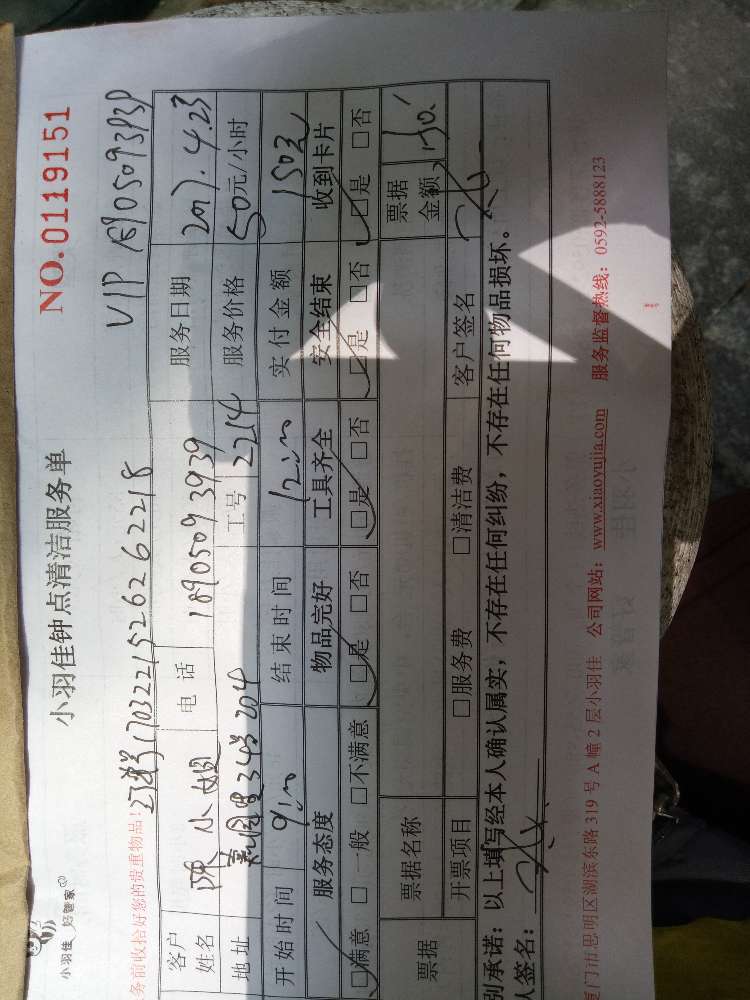 小羽佳 好管家
小羽佳钟点清洁服务单
NO.0119151
务前收拾好您的贵重物品!
170322152626 2218
VIP 18905093939
客户姓名 陈小姐 电话 18905093939 服务日期 2017.4.23
地址 34号204 工号 2214 服务价格 50元/小时
开始时间 9:00 结束时间 12:00 实付金额 150元
服务态度 物品完好 工具齐全 安全结束 收到卡片
□满意 □一般 □不满意 □是 □否 □是 □否 □是 □否 □是 □否
票据 票据名称 票据金额 150.
开票项目 □服务费 □清洁费 客户签名
别承诺:以上填写经本人确认属实,不存在任何纠纷,不存在任何物品损坏。
人签名:
厦门市思明区湖滨东路 319 号 A 幢 2 层小羽佳 公司网站:www.xiaoyujia.com 服务监督热线:0592-5888123